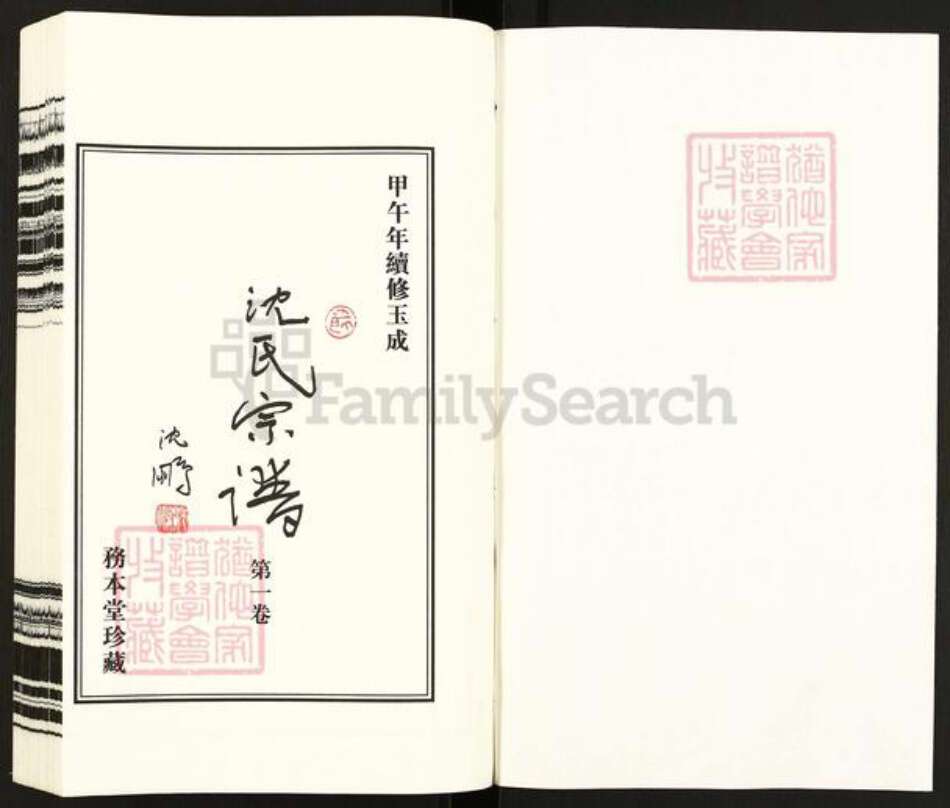 甲午年續修玉成
沈氏宗譜
第一卷
沈鵬
務本堂珍藏
FamilySearch
譜學會
收藏
譜學會
收藏